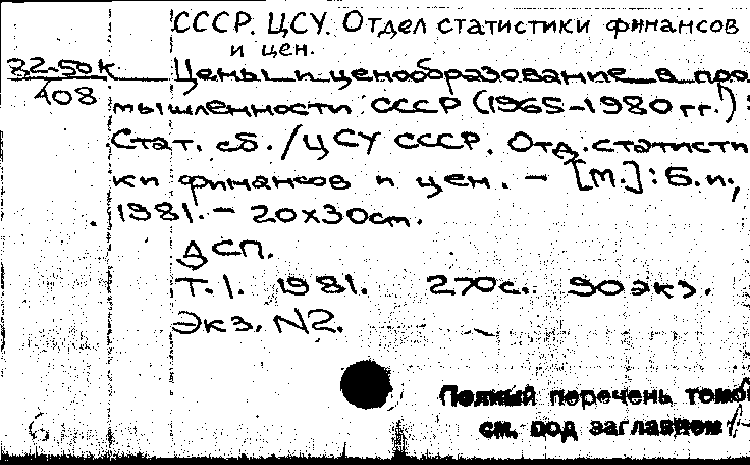 СССР. ЦСУ. Отдел статистики финансов
и цен.
82-50к
408
Цены и ценообразование в про
мышленности СССР (1965-1980 гг.):
Стат. сб. / ЦСУ СССР. Отд. статисти
ки финансов и цен. - [М.]: Б.и.,
1981. - 20х30см.
ДСП.
Т.1. 1981. 270с. 90экз.
Экз. N2.
Полный перечень томов
см. под заглавием
6